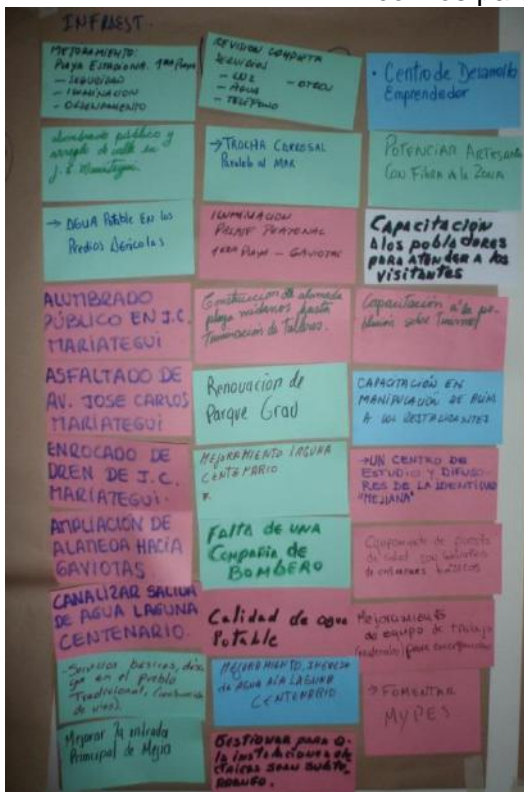 INFRAEST.
MEJORAMIENTO:
PLAYA ESTACIONA. 1RA Playa
- SEGURIDAD
- ILUMINACION
- ORDENAMIENTO
Alumbrado público y
arreglo de calle en
J. C. Mariategui
→ AGUA Potable EN los
Predios Agricolas
ALUMBRADO
PÚBLICO EN J.C.
MARIATEGUI
ASFALTADO DE
AV. JOSE CARLOS
MARIATEGUI
ENROCADO DE
DREN DE J.C.
MARIATEGUI.
AMPLIACIÓN DE
ALAMEDA HACÍA
GAVIOTAS
CANALIZAR SALIDA
DE AGUA LAGUNA
CENTENARIO.
Servicios básicos,
en el pueblo
Tradicional,
Mejorar la entrada
Principal de Mejia
REVISION COMPLETA
SERVICIOS
- LUZ - OTROS
- AGUA
- TELÉFONO
→ TROCHA CARROSAL
Paralelo al MAR
ILUMINACION
PASAJE PEATONAL
1ERA PLAYA - GAVIOTAS
Construcción de alameda
playa hasta
Renovación de
Parque Grau
MEJORAMIENTO LAGUNA
CENTENARIO
Falta de una
Compañia de
BOMBERO
Calidad de agua
Potable
MEJORAMIENTO, INGRESO
de AGUA A LA LAGUNA
CENTENARIO
Gestionar para q.
las instalaciones elé-
ctricas sean subte-
rraneo.
• Centro de Desarrollo
Emprendedor
POTENCIAR ARTESANIA
CON Fibra de la ZONA
CAPACITACION
A los pobladores
PARA ATENDER A los
VISITANTES
Capacitación a la po-
blación sobre Turismo
CAPACITACIÓN EN
MANIPULACIÓN DE ALIM
A LOS RESTAURANTES
→ UN CENTRO DE
ESTUDIO Y DIFUSO-
RES DE LA IDENTIDAD
"MEJIANA"
de salud con
de exámenes básicos
Mejoramiento
de equipo de trabajo
para emergencias
→ FOMENTAR
MYPES